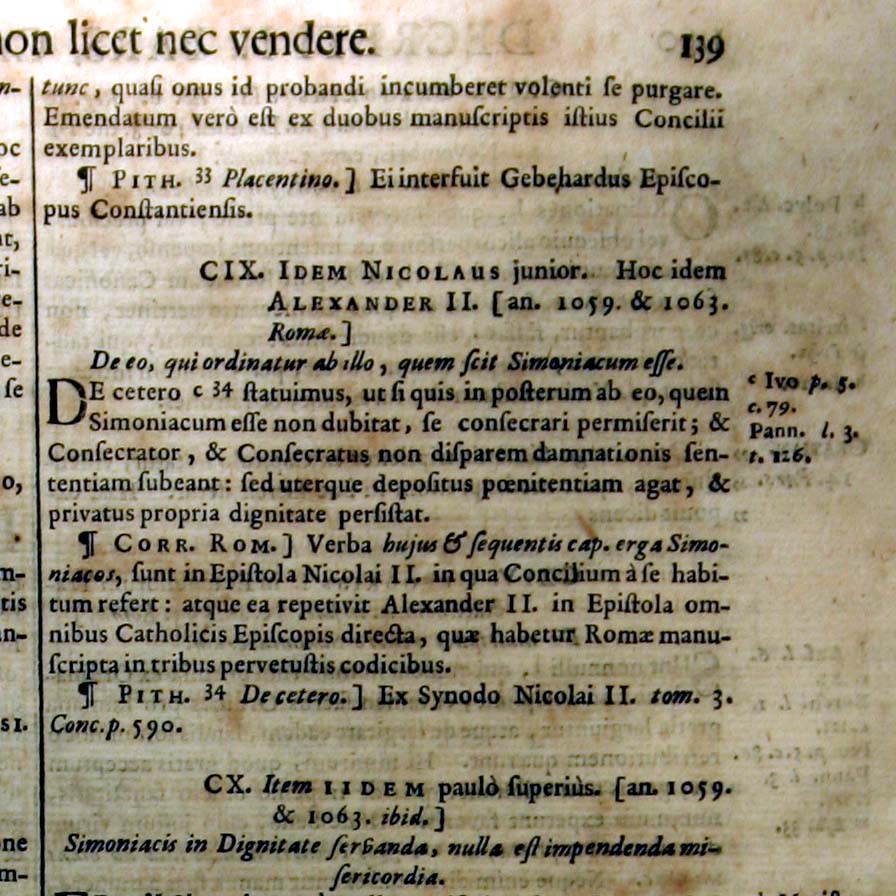 non licet nec vendere. 139
tunc, quaſi onus id probandi incumberet volenti ſe purgare.
Emendatum verò eſt ex duobus manuſcriptis iſtius Concilii
exemplaribus.
¶ PITH. 33 Placentino.] Ei interfuit Gebehardus Epiſco-
pus Conſtantienſis.
CIX. IDEM NICOLAUS junior. Hoc idem
ALEXANDER II. [an. 1059. & 1063.
Romæ.]
De eo, qui ordinatur ab illo, quem ſcit Simoniacum eſſe.
DE cetero c 34 ſtatuimus, ut ſi quis in poſterum ab eo, quem
Simoniacum eſſe non dubitat, ſe conſecrari permiſerit; &
Conſecrator, & Conſecratus non diſparem damnationis ſen-
tentiam ſubeant: ſed uterque depoſitus pœnitentiam agat, &
privatus propria dignitate perſiſtat.
c Ivo p. 5.
c. 79.
Pann. l. 3.
t. 126.
¶ CORR. ROM.] Verba hujus & ſequentis cap. erga Simo-
niacos, ſunt in Epiſtola Nicolai II. in qua Concilium à ſe habi-
tum refert: atque ea repetivit Alexander II. in Epiſtola om-
nibus Catholicis Epiſcopis directa, quæ habetur Romæ manu-
ſcripta in tribus pervetuſtis codicibus.
¶ PITH. 34 De cetero.] Ex Synodo Nicolai II. tom. 3.
Conc. p. 590.
CX. Item IIDEM paulò ſuperiùs. [an. 1059
& 1063. ibid.]
Simoniacis in Dignitate ſervanda, nulla eſt impendenda mi-
ſericordia.